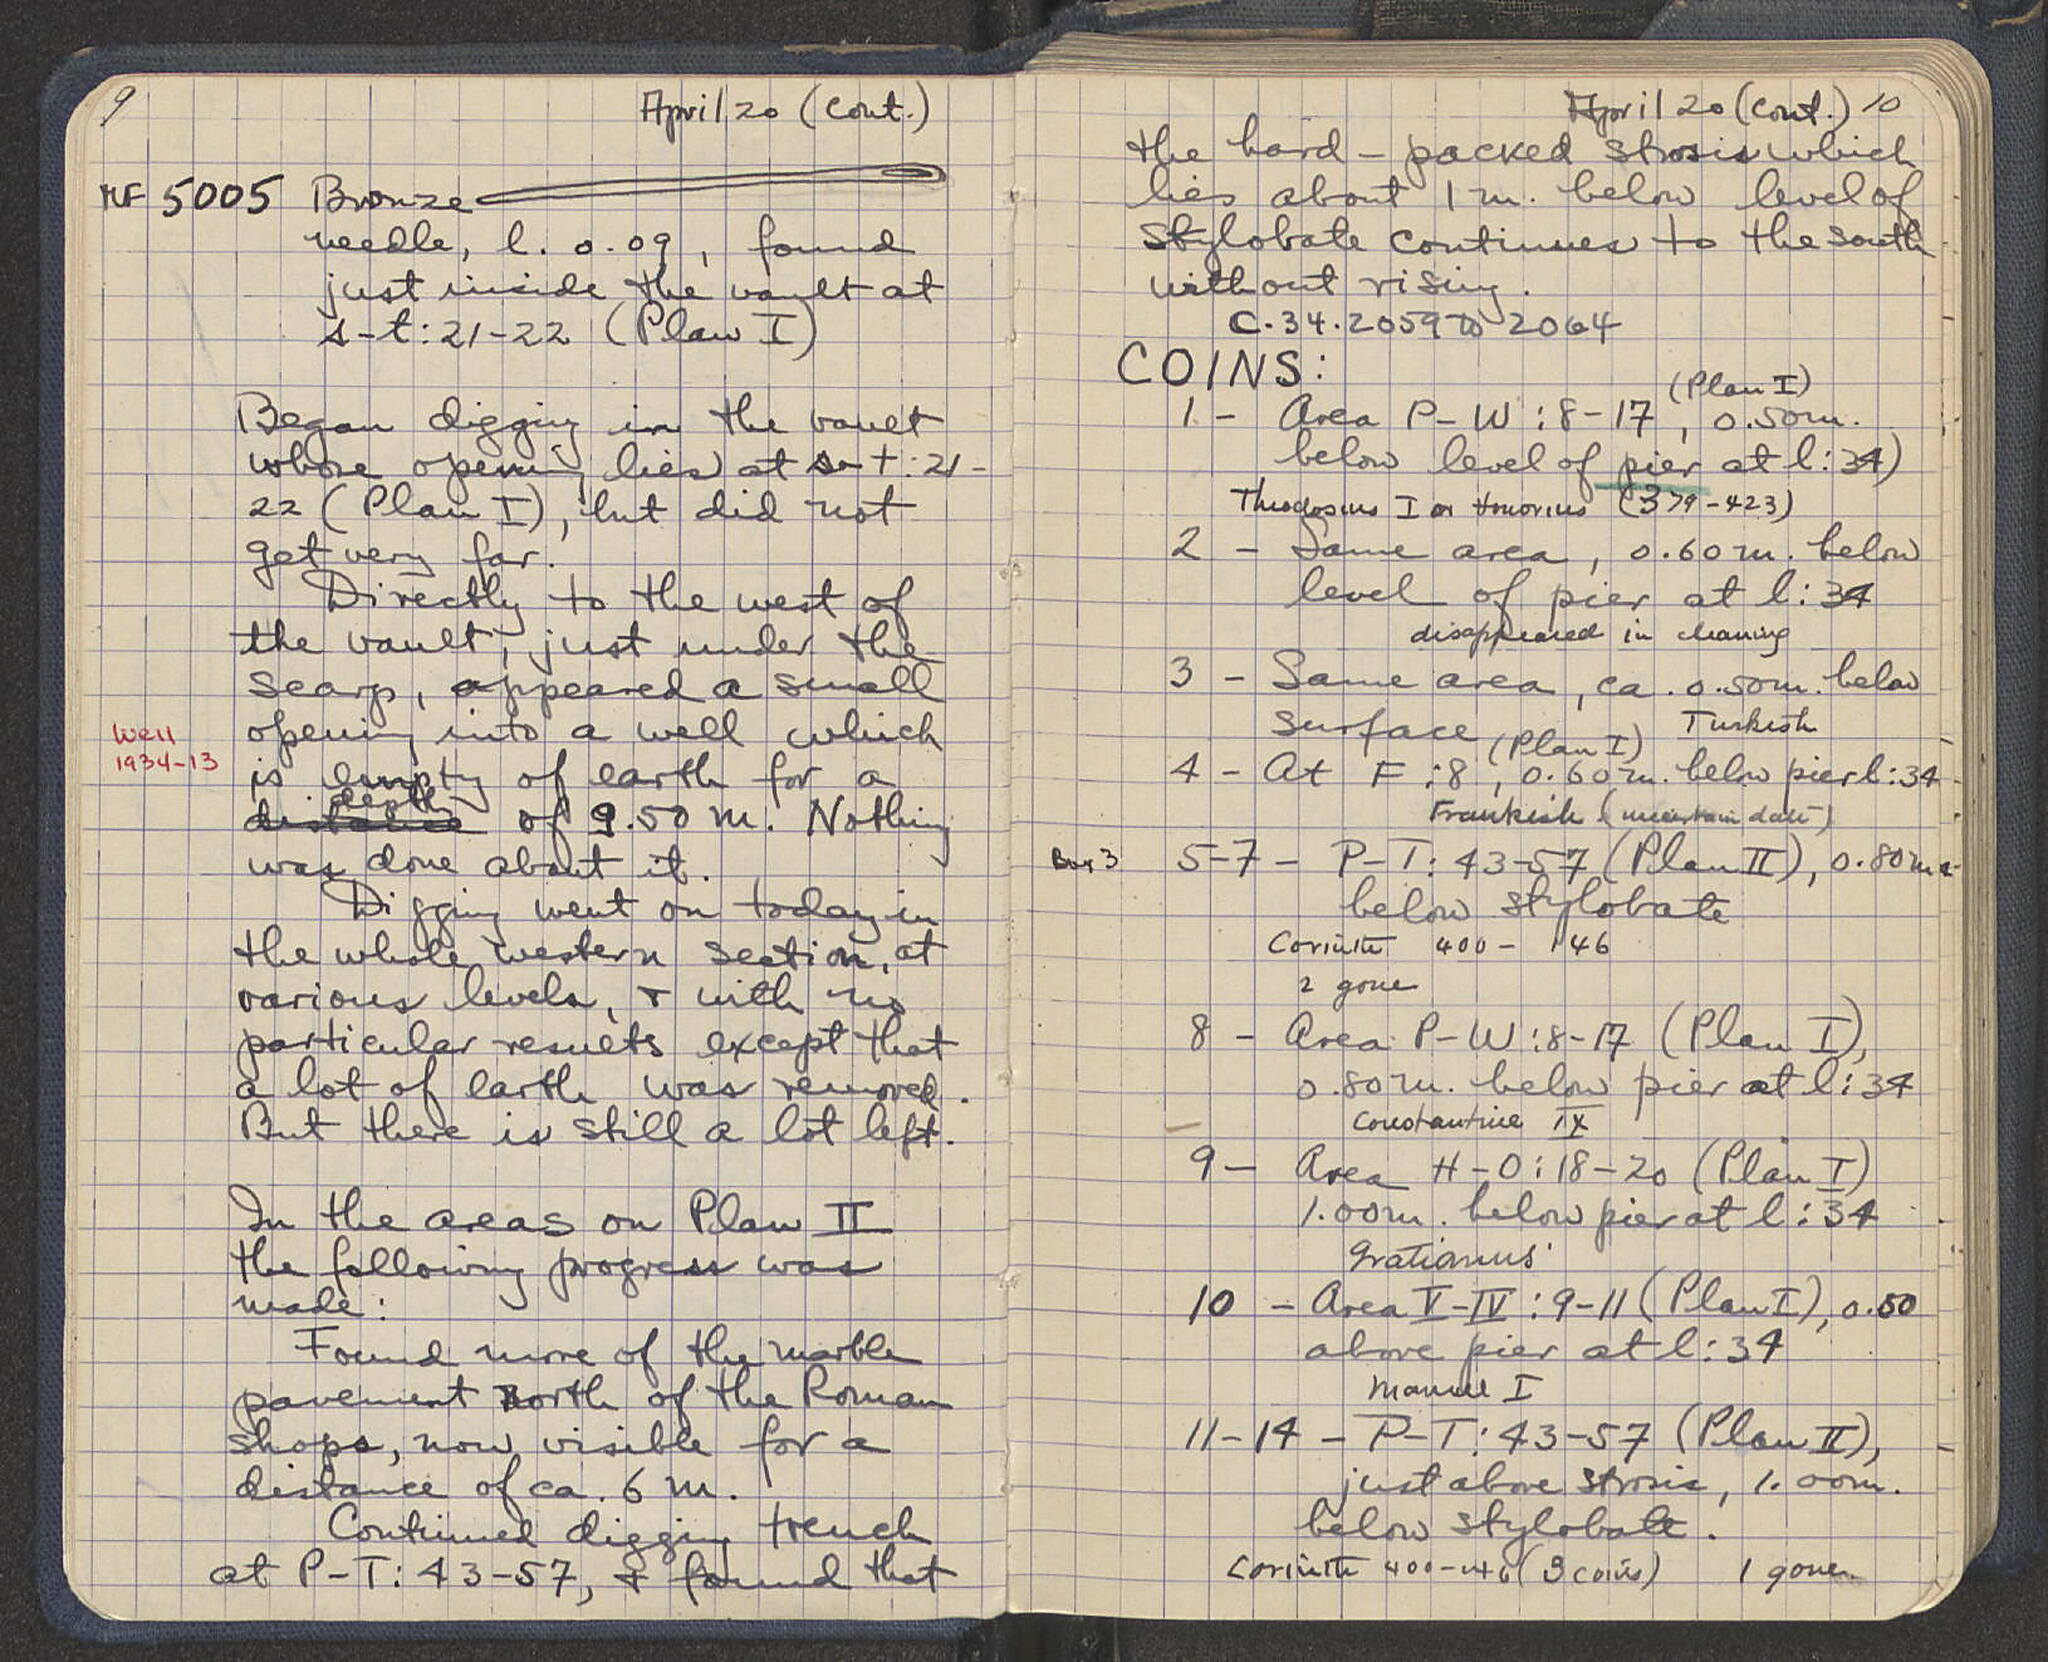 9
April 20 (cont.)
MF 5005 Bronze
needle, l. 0.09, found
just inside the vault at
s-t:21-22 (Plan I)
Began digging in the vault
whose opening lies at s-t:21-
22 (Plan I), but did not
get very far.
Directly to the west of
the vault, just under the
scarp, appeared a small
opening into a well which
Well
1934-13
is empty of earth for a
depth
distance of 9.50 m. Nothing
was done about it.
Digging went on today in
the whole western section, at
various levels, + with no
particular results except that
a lot of earth was removed.
But there is still a lot left.
In the areas on Plan II
the following progress was
made:
Found more of the marble
pavement north of the Roman
shops, now visible for a
distance of ca. 6 m.
Continued digging trench
at P-T:43-57, + found that
April 20 (cont.) 10
the hard-packed strosis which
lies about 1 m. below level of
stylobate continues to the south
without rising.
C.34.2059 to 2064
COINS:
(Plan I)
1 - Area P-W:8-17, 0.50m.
below level of pier at l:34)
Theodosius I or Honorius (379-423)
2 - Same area, 0.60m. below
level of pier at l:34
disappeared in cleaning
3 - Same area, ca. 0.50m. below
surface Turkish
(Plan I)
4 - At F:8, 0.60m. below pier l:34
Frankish (uncertain date)
Box 3
5-7 - P-T:43-57 (Plan II), 0.80m
below stylobate
Corinth 400-146
2 gone
8 - Area P-W:8-17 (Plan I),
0.80m. below pier at l:34
Constantine IX
9 - Area H-O:18-20 (Plan I)
1.00m. below pier at l:34
Gratianus
10 - Area V-IV:9-11 (Plan I), 0.50
above pier at l:34
Manuel I
11-14 - P-T:43-57 (Plan II),
just above strosis, 1.00m.
below stylobate.
Corinth 400-146 (3 coins) 1 gone